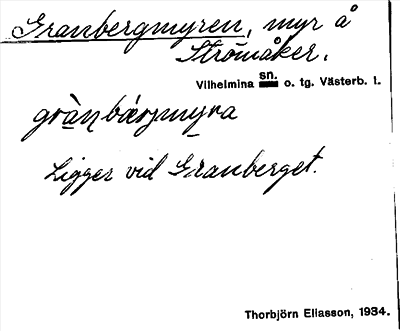 Granbergmyren, myr å
Strömåker.
Vilhelmina sn. o. tg. Västerb. l.
grànbærjmyra
Ligger vid Granberget.
Thorbjörn Eliasson, 1934.